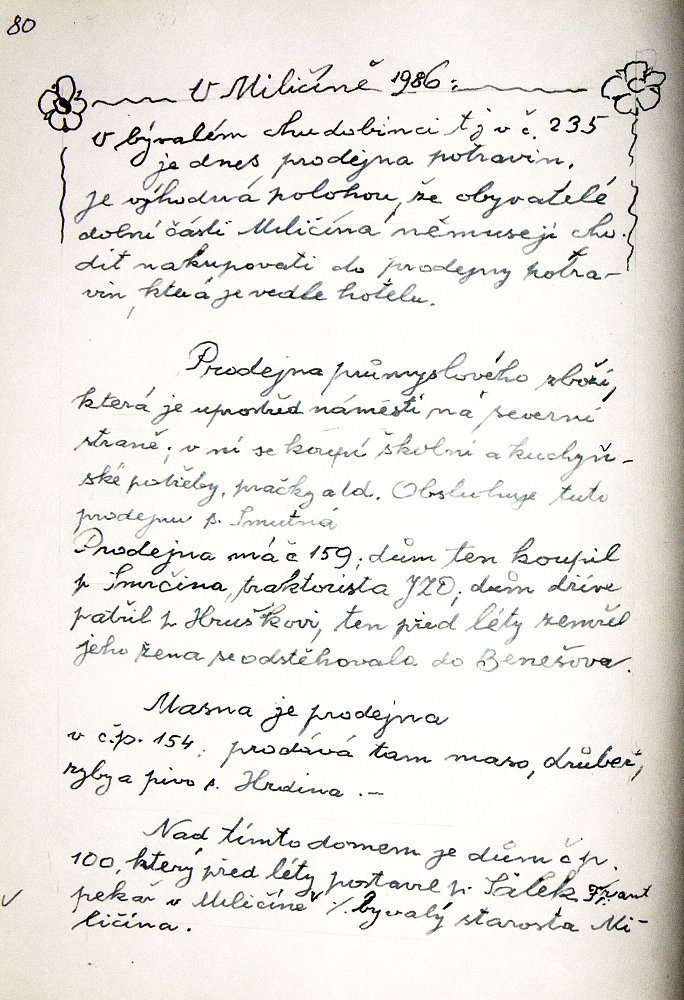 80
V Miličíně 1986:
V bývalém chudobinci tj v č. 235
je dnes prodejna potravin.
je výhodná polohou, že obyvatelé
dolní části Miličína nemusejí cho-
dit nakupovati do prodejny potra-
vin, která je vedle hotelu.
Prodejna průmyslového zboží,
která je uprostřed náměstí na severní
straně; v ní se koupí školní a kuchyň-
ské potřeby, pračky atd. Obsluhuje tuto
prodejnu s. Smutná
Prodejna má č 159; dům ten koupil
p Smrčina, traktorista JZD; dům dříve
patřil p Hruškovi, ten před léty zemřel
jeho žena se odstěhovala do Benešova.
Masna je prodejna
v č.p. 154; prodává tam maso, drůbež,
ryby a pivo s. Hrdina .-
Nad tímto domem je dům č p.
100, který před léty postavil p. Sálek Frant
pekař v Miličíně /. bývalý starosta Mi-
ličína.